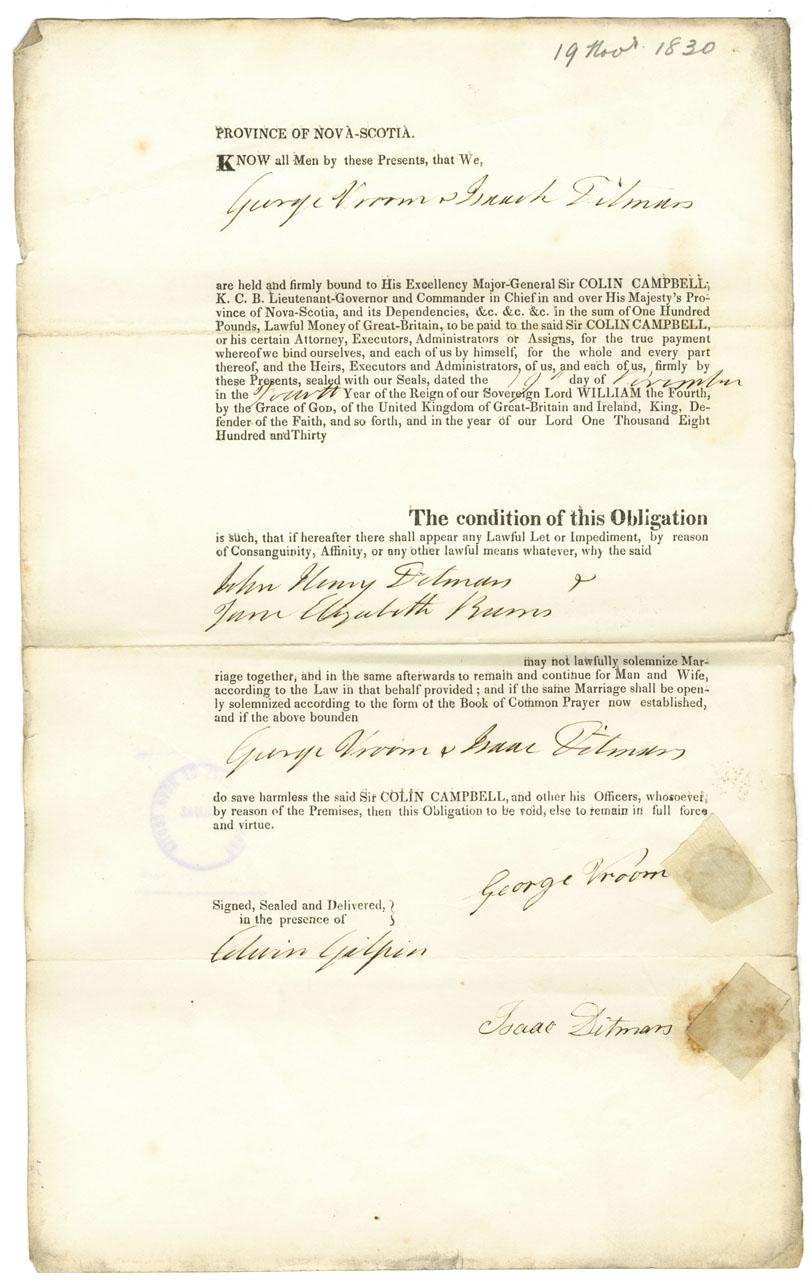 19 Novr 1830
PROVINCE OF NOVA-SCOTIA.
KNOW all Men by these Presents, that We,
George Vroom & Isaac Ditmars
are held and firmly bound to His Excellency Major-General Sir COLIN CAMPBELL,
K. C. B. Lieutenant-Governor and Commander in Chief in and over His Majesty's Pro-
vince of Nova-Scotia, and its Dependencies, &c. &c. &c. in the sum of One Hundred
Pounds, Lawful Money of Great-Britain, to be paid to the said Sir COLIN CAMPBELL,
or his certain Attorney, Executors, Administrators or Assigns, for the true payment
whereof we bind ourselves, and each of us by himself, for the whole and every part
thereof, and the Heirs, Executors and Administrators, of us, and each of us, firmly by
these Presents, sealed with our Seals, dated the 19th day of November
in the Fourth Year of the Reign of our Sovereign Lord WILLIAM the Fourth,
by the Grace of GOD, of the United Kingdom of Great-Britain and Ireland, King, De-
fender of the Faith, and so forth, and in the year of our Lord One Thousand Eight
Hundred and Thirty
The condition of this Obligation
is such, that if hereafter there shall appear any Lawful Let or Impediment, by reason
of Consanguinity, Affinity, or any other lawful means whatever, why the said
John Henry Ditmars &
Jane Elizabeth Burns
may not lawfully solemnize Mar-
riage together, and in the same afterwards to remain and continue for Man and Wife,
according to the Law in that behalf provided; and if the same Marriage shall be open-
ly solemnized according to the form of the Book of Common Prayer now established,
and if the above bounden
George Vroom & Isaac Ditmars
do save harmless the said Sir COLIN CAMPBELL, and other his Officers, whosoever,
by reason of the Premises, then this Obligation to be void, else to remain in full force
and virtue.
George Vroom
Signed, Sealed and Delivered, }
in the presence of }
Edwin Gilpin
Isaac Ditmars